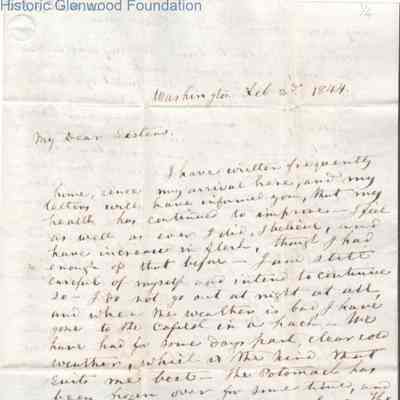 Historic Glenwood Foundation
1/4
Washington Feb 2d. 1844.
My Dear Sisters.
I have written frequently
home, since my arrival here, and my
letters will have informed you, that my
health has continued to improve - I feel
as well as ever I did, I believe, and
have increase in flesh, though I had
enough of that before - I am still
careful of myself and intend to continue
so - I do not go out at night at all,
and when the weather is bad I have
gone to the Capitol in a hack - We
have had for some days past, clear cold
weather, which is the kind that
suits me best - the Potomach has
been frozen over for some time, and
The